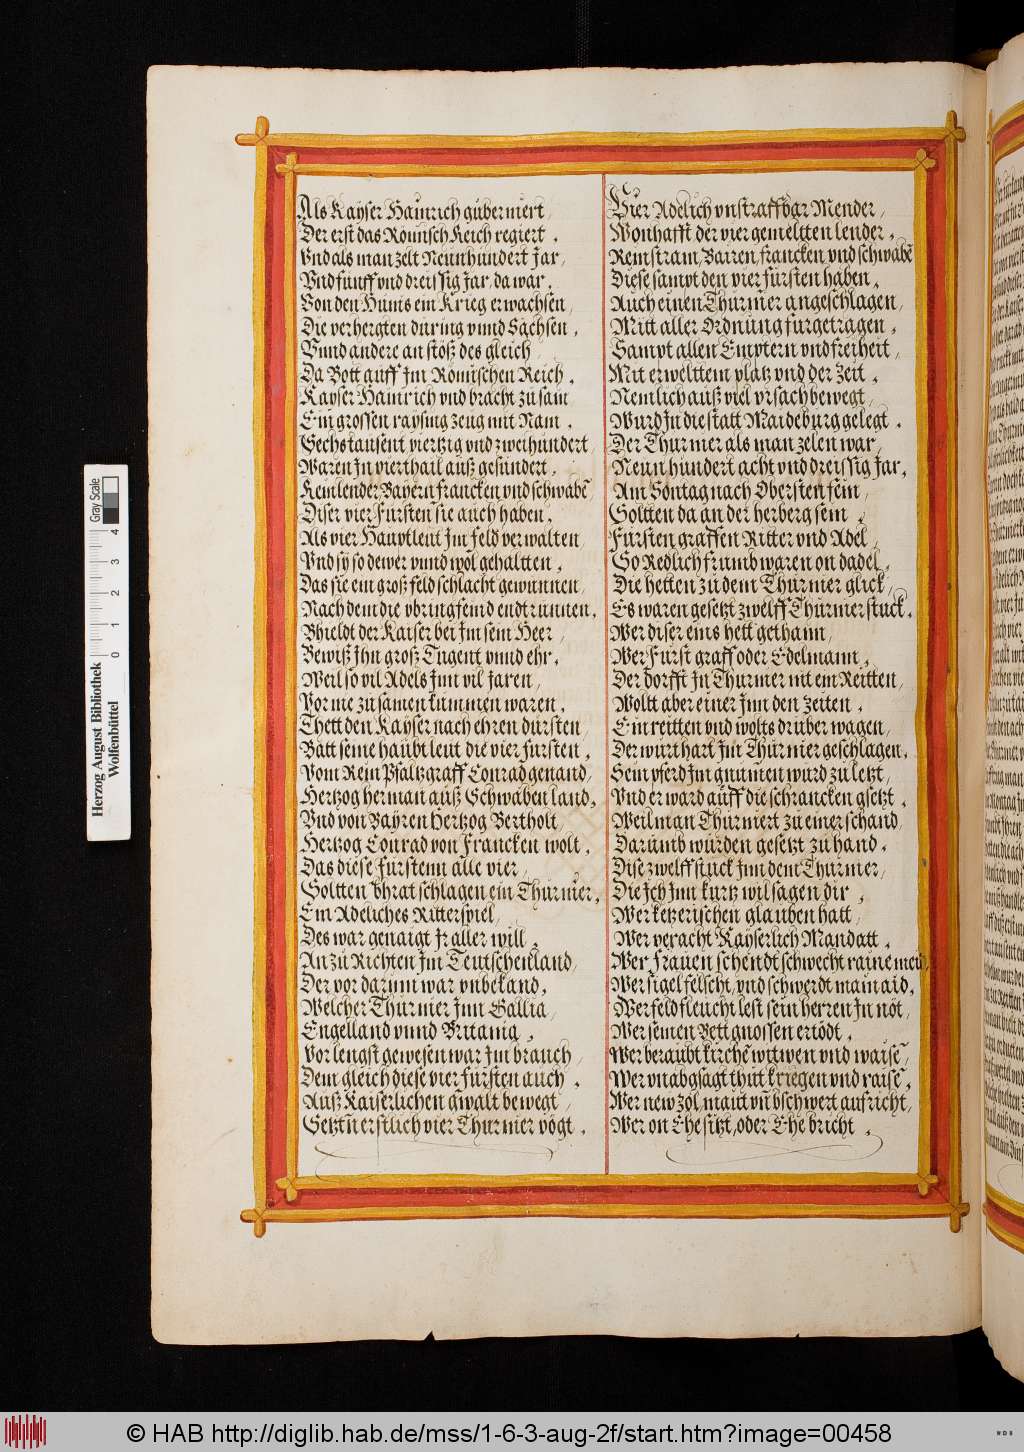 Als Kayser Hainrich guberniert,
Der erst das Römisch Reich regiert.
Vnd als man zelt Neunhundert Jar,
Vnd funff vnd dreissig Jar, da war.
Von den Hunis ein Krieg erwachsen,
Die verhergten during vnnd Sachsen,
Vnnd andere anstöß des gleich,
Da Bott auff Im Römischen Reich.
Kayser Hainrich vnd bracht zu sam
Ein grossen raysing zeug mit Nam.
Sechstausent viertzig vnd zweihundert,
Waren In vierthail auß gesundert.
Reinlender Bayern francken vnd schwabē,
Diser vier Fursten sie auch haben.
Als vier Hauptleut Im feld verwalten,
Vnd sÿ so dewer vnnd wol gehaltten.
Das sie ein groß feldschlacht gewunnen,
Nach dem die vbring feind endtrunnen.
Bhieldt der Kaiser bei Im sein Heer,
Bewiß Ihn groß Tugent vnnd ehr.
Weil so vil Adels Inn vil Jaren,
Vor nie zusamen kummen waren.
Thett den Kayser nach ehren dursten,
Batt seine haubtleut die vier fursten.
Vom Rein Pfaltzgraff Conrad genand,
Hertzog herman auß Schwaben land,
Vnd von Bayren Hertzog Bertholt,
Hertzog Conrad von Francken wolt.
Das diese fürstenn alle vier,
Soltten Bhratschlagen ein Thurnier,
Ein Adeliches Ritterspiel,
Des war genaigt Ir aller will.
Anzu Richten Im Teutschenland,
Der vor darum war vnbekand,
Welcher Thurnier Inn Gallia,
Engelland vnnd Britania,
Vor lengst gewesen war Im brauch,
Dem gleich diese vier fursten auch.
Auß Kaiserlichen gwalt bewegt,
Setztn erstlich vier Thurnier vögt.
Vier Adelich vnstraffbar Mender,
Wonhafft der vier gemeltten lender.
Reinstram, Bairen, francken vnd schwabē
Diese sampt den vier fürsten haben,
Auch einen Thurnier angeschlagen,
Mitt aller Ordnung furgetragen.
Sampt allen Emptern vnd freiheit,
Mit erwelttem platz vnd der Zeit.
Nemlich auß viel vrsach bewegt,
Wurd In die statt Maideburg gelegt.
Der Thurnier als man zelen war,
Neun hundert acht vnd dreissig Jar,
Am Sontag nach Obersten fein,
Soltten da an der herberg sein,
Fursten graffen Ritter vnd Adel,
So Redlich frumb waren on dadel.
Die hetten zu dem Thurnier glick,
Es waren gesetzt zwelff Thurnier stuck.
Wer diser eins hett gethann,
Wer Fürst graff oder Edelmann.
Der dorfft In Thurnier nit ein Reitten,
Woltt aber einer Inn den Zeiten.
Ein reitten vnd wolts druber wagen,
Der wurt hart Im Thurnier geschlagen.
Sein pferd Im gnumen wurd zu letzt,
Vnd er ward auff die schrancken gsetzt.
Weil man Thurniert zu einer schand,
Darumb wurden gesetzt zu hand.
Dise zwelff stuck Inn dem Thurnier,
Die Ich Inn kurtz wil sagen dir,
Wer ketzerischen glauben hatt,
Wer veracht Kayserlich Mandatt.
Wer frauen schendt schwecht raine meid,
Wer sigel felscht, vnd schwerdt mainaid,
Wer feldfleucht lest sein herren In not,
Wer seinen Bettgnossen ertödt.
Wer beraubt kirchē witwen vnd waisē,
Wer vnabgsagt thut kriegen vnd raisē,
Wer new zol, maut vn̄ bschwert aufricht,
Wer on Ehe sitzt, oder Ehe bricht.
Herzog August Bibliothek
Wolfenbüttel
0 1 2 3 4
Gray Scale
© HAB http://diglib.hab.de/mss/1-6-3-aug-2f/start.htm?image=00458
WDB